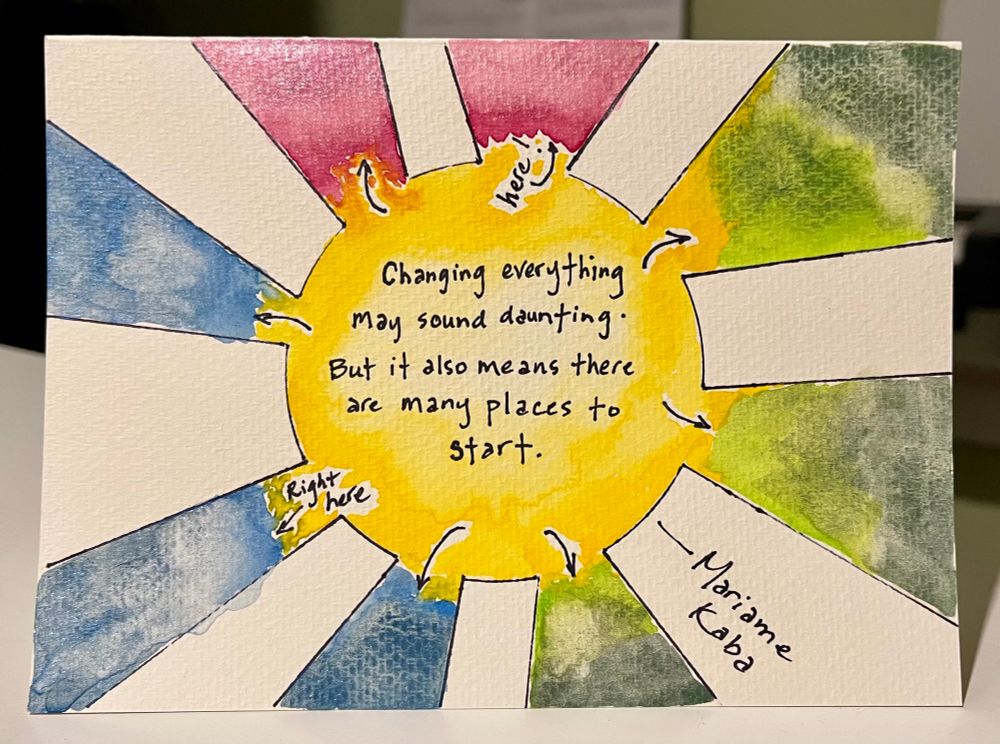 here!
Changing everything
may sound daunting.
But it also means there
are many places to
start.
Right
here
— Mariame
Kaba